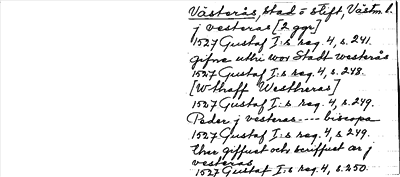 Västerås, stad o stift, Västm l.
j vesteras [2 ggr]
1527 Gustaf I:s reg. 4, s. 241.
gifne uthi wor Stadt westerås
1527 Gustaf I:s reg. 4, s. 248.
[Wthaff Westheras]
1527 Gustaf I:s reg. 4, s. 249.
Peder j vesteras ---- biscopa
1527 Gustaf I:s reg. 4, s. 249.
giffuet och scriffuet ar j
vesteras
1527 Gustaf I:s reg. 4, s. 250.